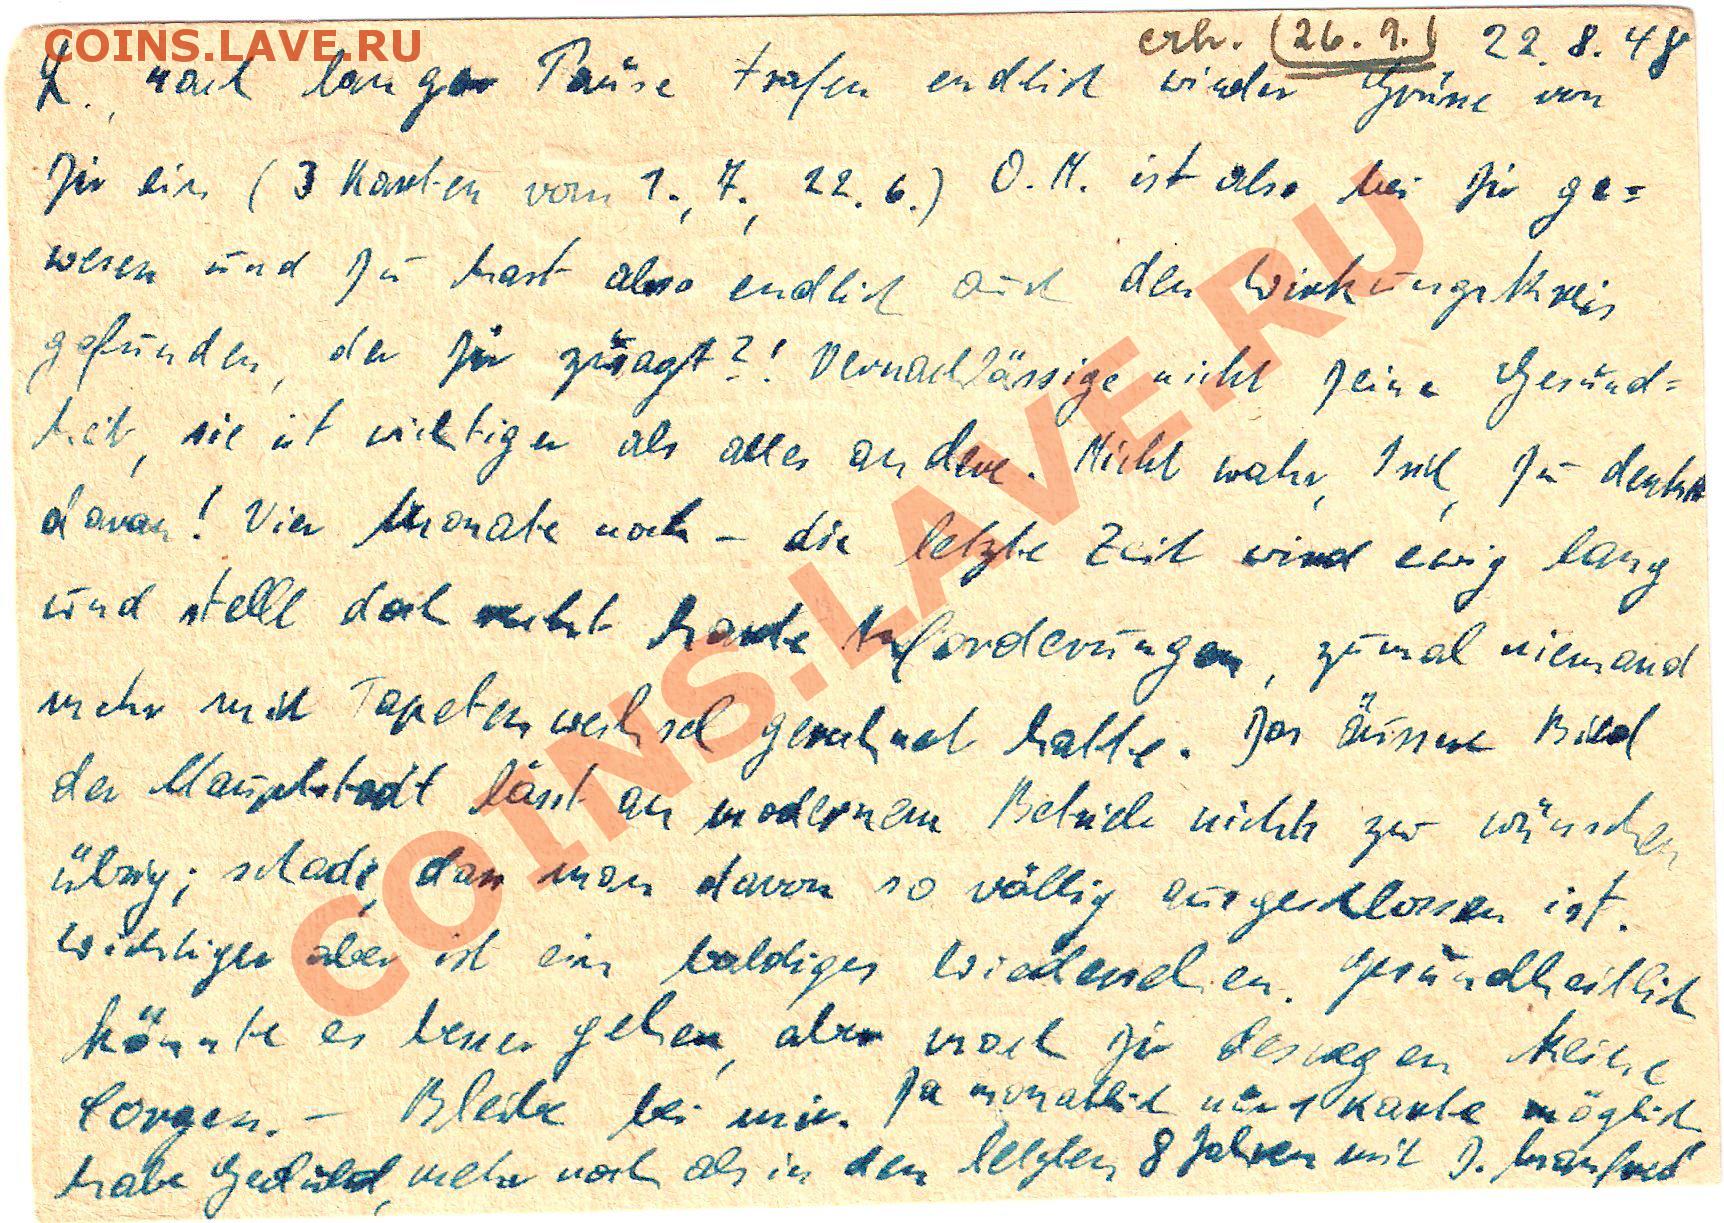 COINS.LAVE.RU
erh. (26.9.) 22.8.48
L., nach langer Pause trafen endlich wieder Grüsse von
Dir ein (3 Karten vom 1., 7., 22.6.) O.M. ist also bei Dir ge=
wesen und Du hast also endlich auch den Wirkungskreis
gefunden, der Dir zusagt?! Vernachlässige nicht Deine Gesund=
heit, sie ist wichtiger als alles andere. Nicht wahr, Du denkst
daran! Vier Monate noch – die letzte Zeit wird ewig lang
und stellt doch recht harte Anforderungen, zumal niemand
mehr mit Tapetenwechsel gerechnet hatte. Das äussere Bild
der Hauptstadt lässt an modernem Betrieb nichts zu wünschen
übrig; schade, dass man davon so völlig ausgeschlossen ist.
Wichtiger aber ist ein baldiges Wiedersehen. Gesundheitlich
könnte es besser gehen, aber mach Dir deswegen keine
Sorgen. – Bleibe bei mir. Da monatlich nur 1 Karte möglich
habe Geduld, mehr noch als in den letzten 8 Jahren mit D. Manfred
COINS.LAVE.RU